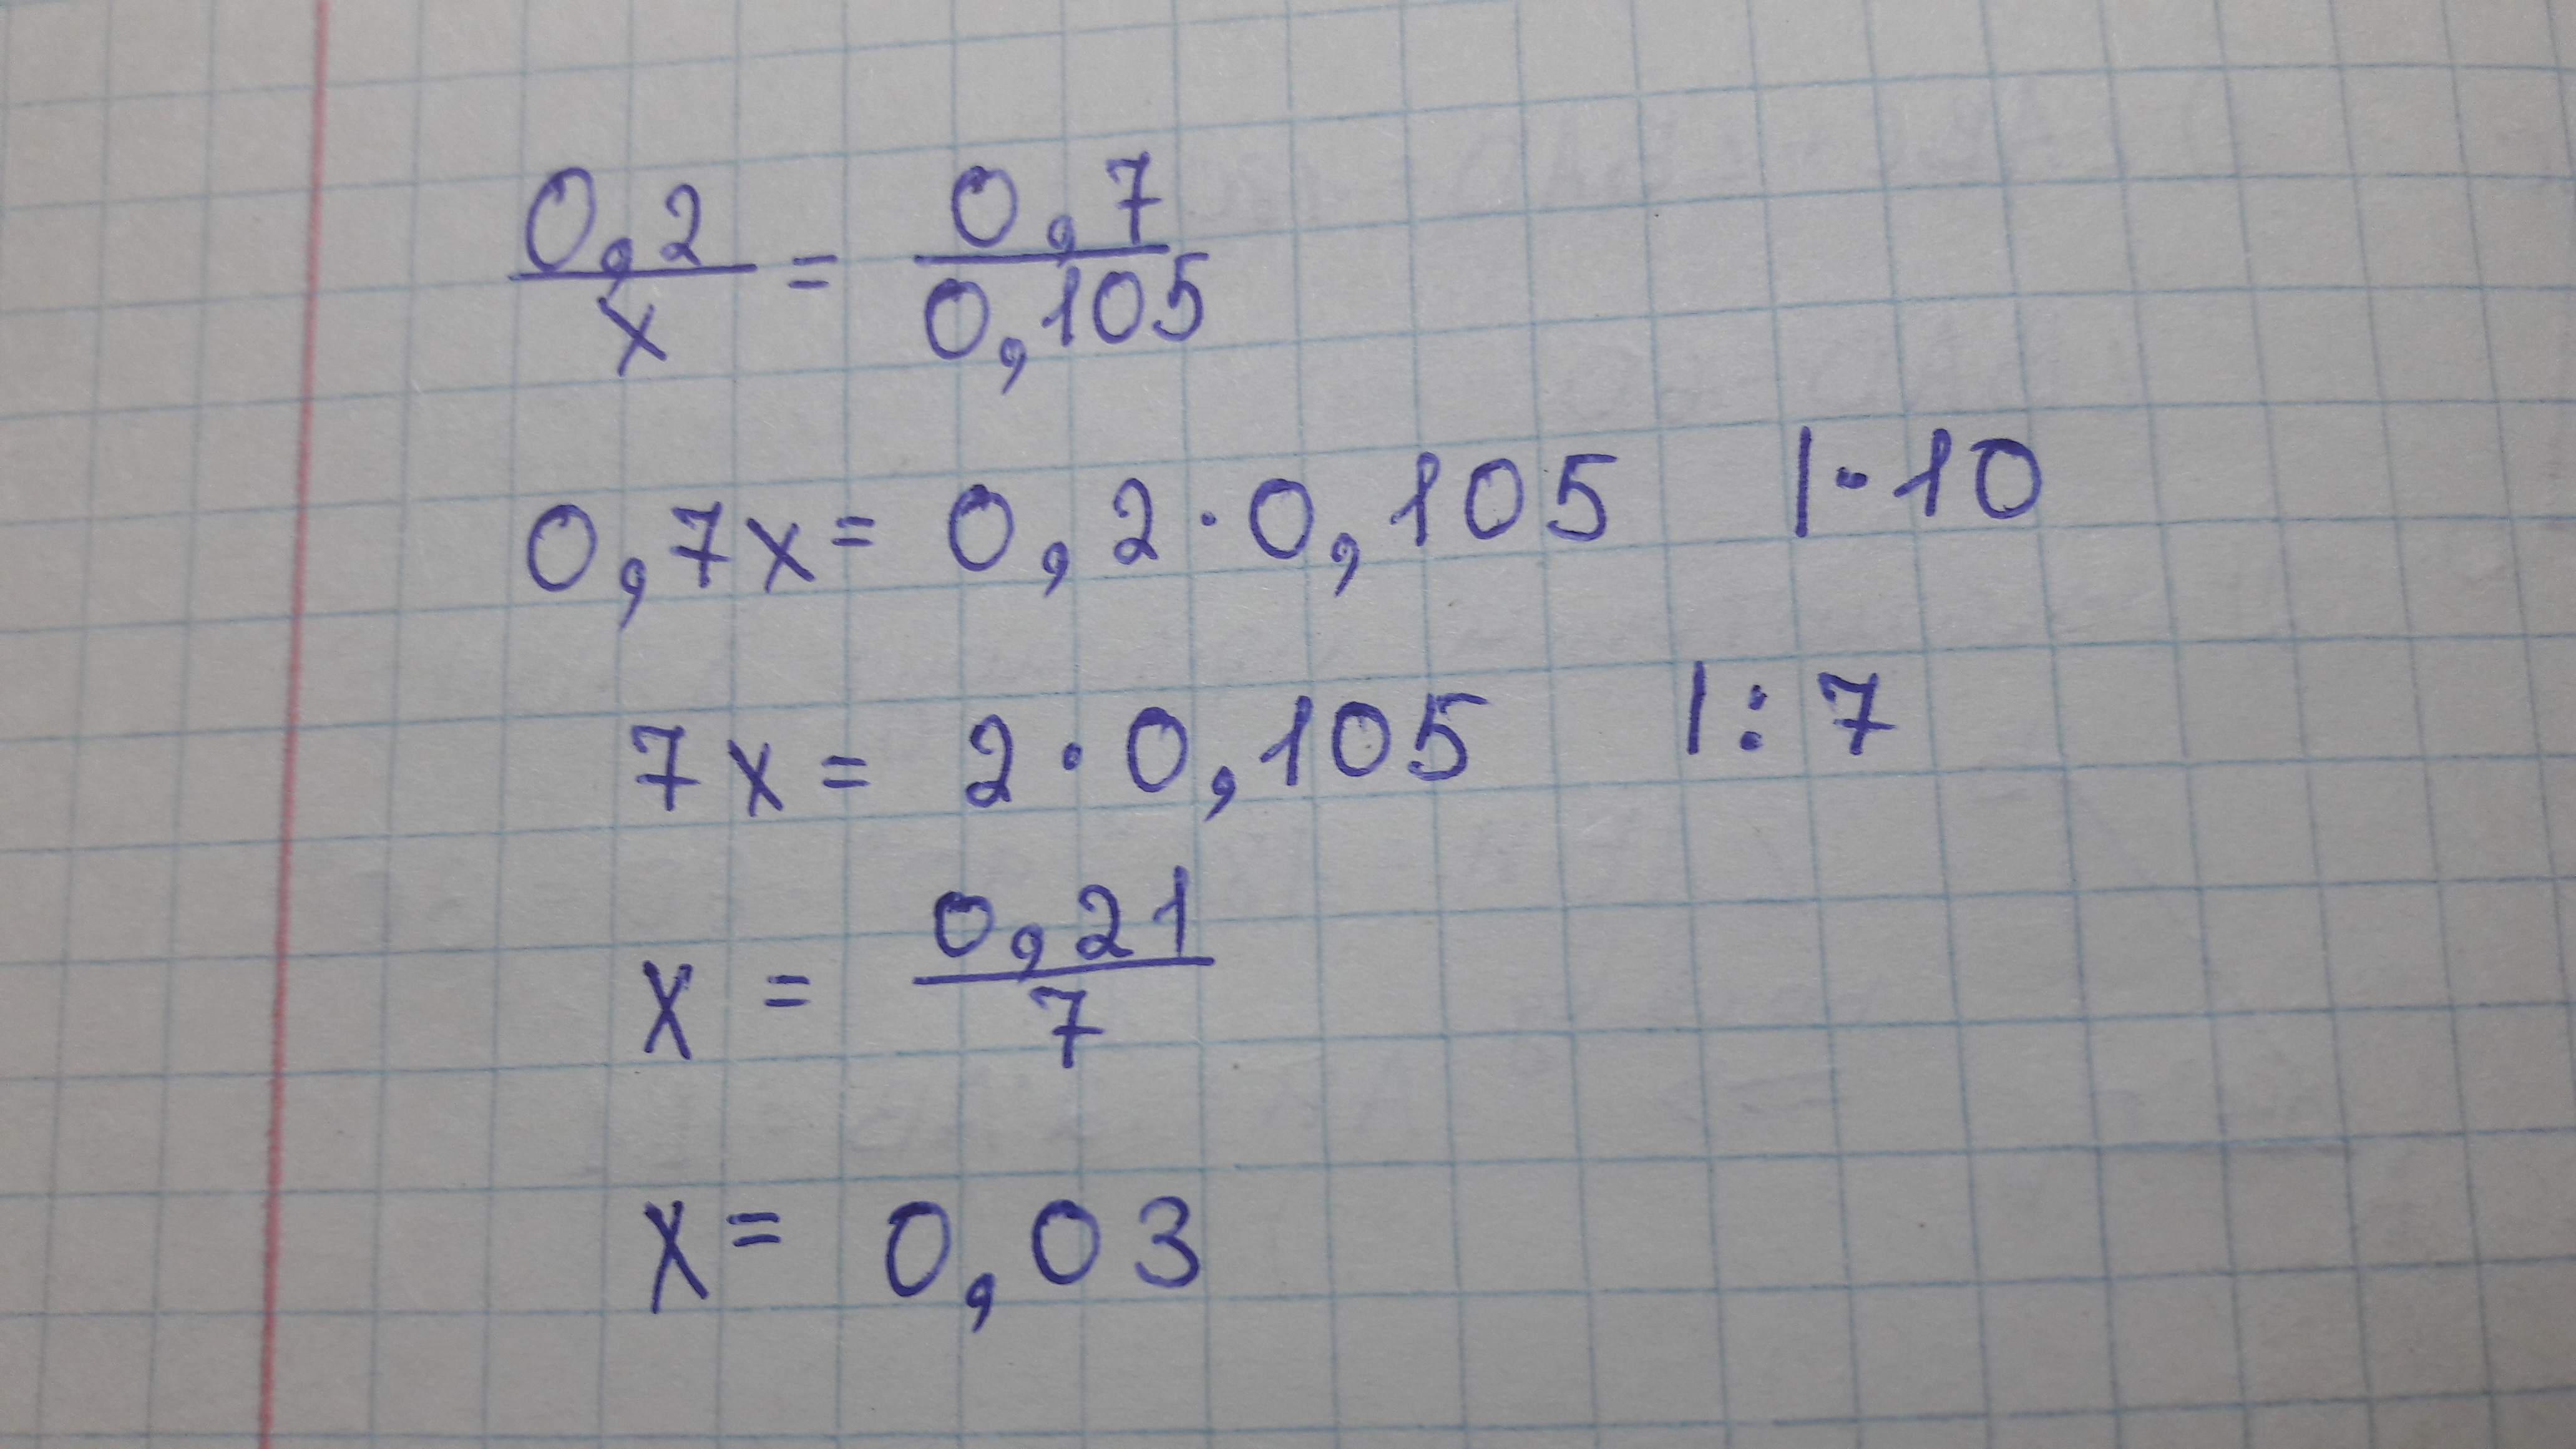 0,2/x = 0,7/0,105
0,7x = 0,2 · 0,105 | · 10
7x = 2 · 0,105 | : 7
x = 0,21/7
x = 0,03